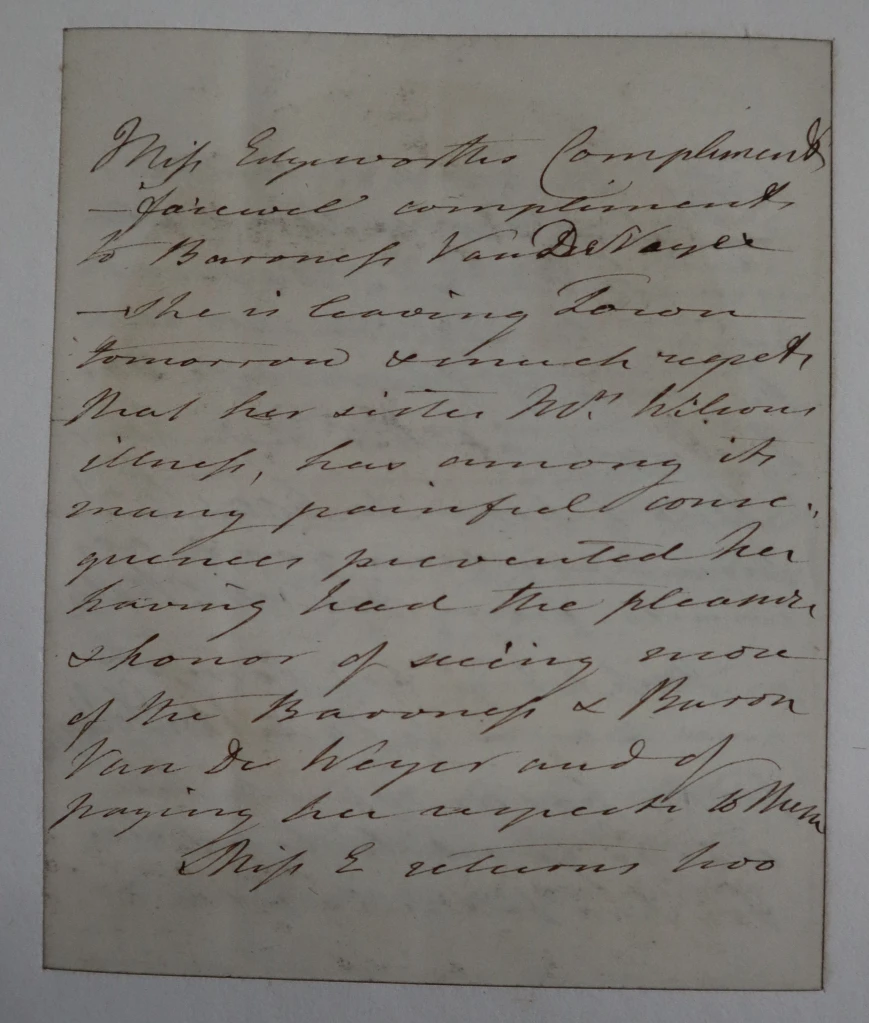 Miss Edgeworths Compliments
— farewel compliments
to Baroness Van De Nayer
— She is leaving Town
tomorrow & much regrets
that her sister Mrs. Wilsons
illness, has among its
many painful conse-
quences prevented her
having had the pleasure
& honor of seeing more
of the Baroness & Baron
Van De Weyer and of
paying her respects to them
Miss E returns two